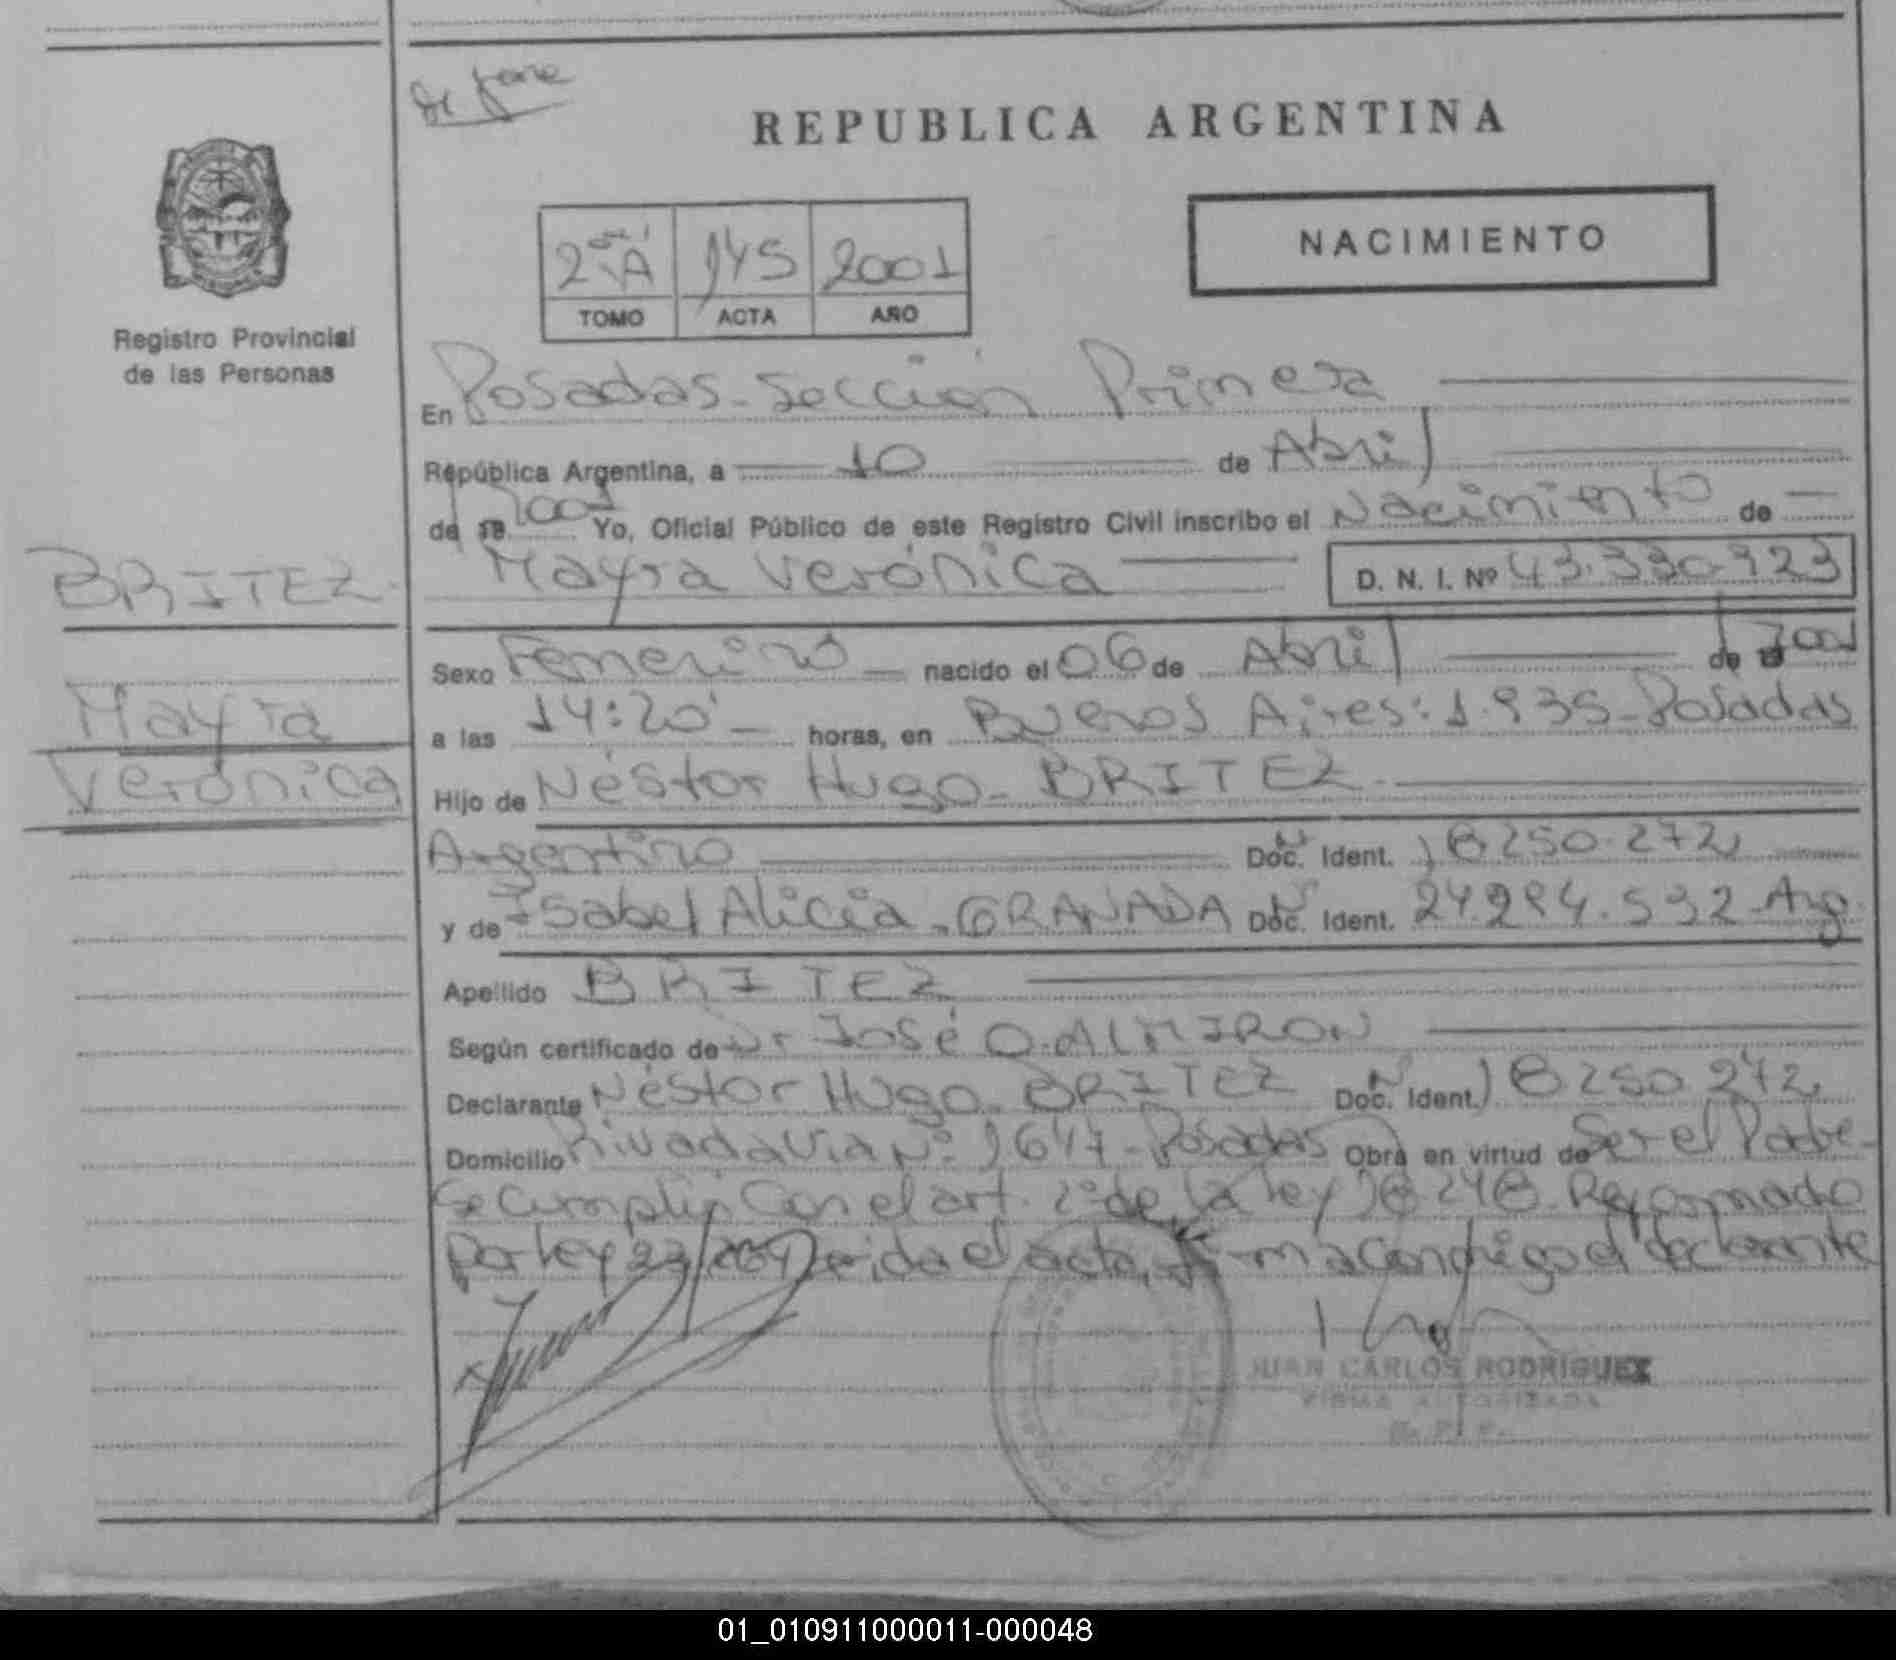 REPUBLICA ARGENTINA
NACIMIENTO
2 A 145 2001
TOMO ACTA AÑO
Registro Provincial
de las Personas
En Posadas - Sección Primera
República Argentina, a 10 de Abril
de 2001 Yo, Oficial Público de este Registro Civil inscribo el Nacimiento de
Mayra Verónica D. N. I. Nº 43.330.923
BRITEZ
Mayra
Verónica
Sexo Femenino nacido el 06 de Abril de 2001
a las 14:20 horas, en Buenos Aires: 1.935 - Posadas
Hijo de Néstor Hugo - BRITEZ
Argentino Doc. Ident. 18.250.272
y de Isabel Alicia - GRANADA Doc. Ident. 24.294.532 Arg.
Apellido BRITEZ
Según certificado de Dr José O. ALMIRON
Declarante Néstor Hugo - BRITEZ Doc. Ident. 18.250.272
Domicilio Rivadavia Nº 1647 - Posadas Obra en virtud de Ser el Padre -
Se Cumplió Con el art. 2º de la ley 18.248. Reformado
por ley el acta, Conmigo el declarante
JUAN CARLOS RODRIGUEZ
FIRMA AUTORIZADA
R. P. P.
01_010911000011-000048